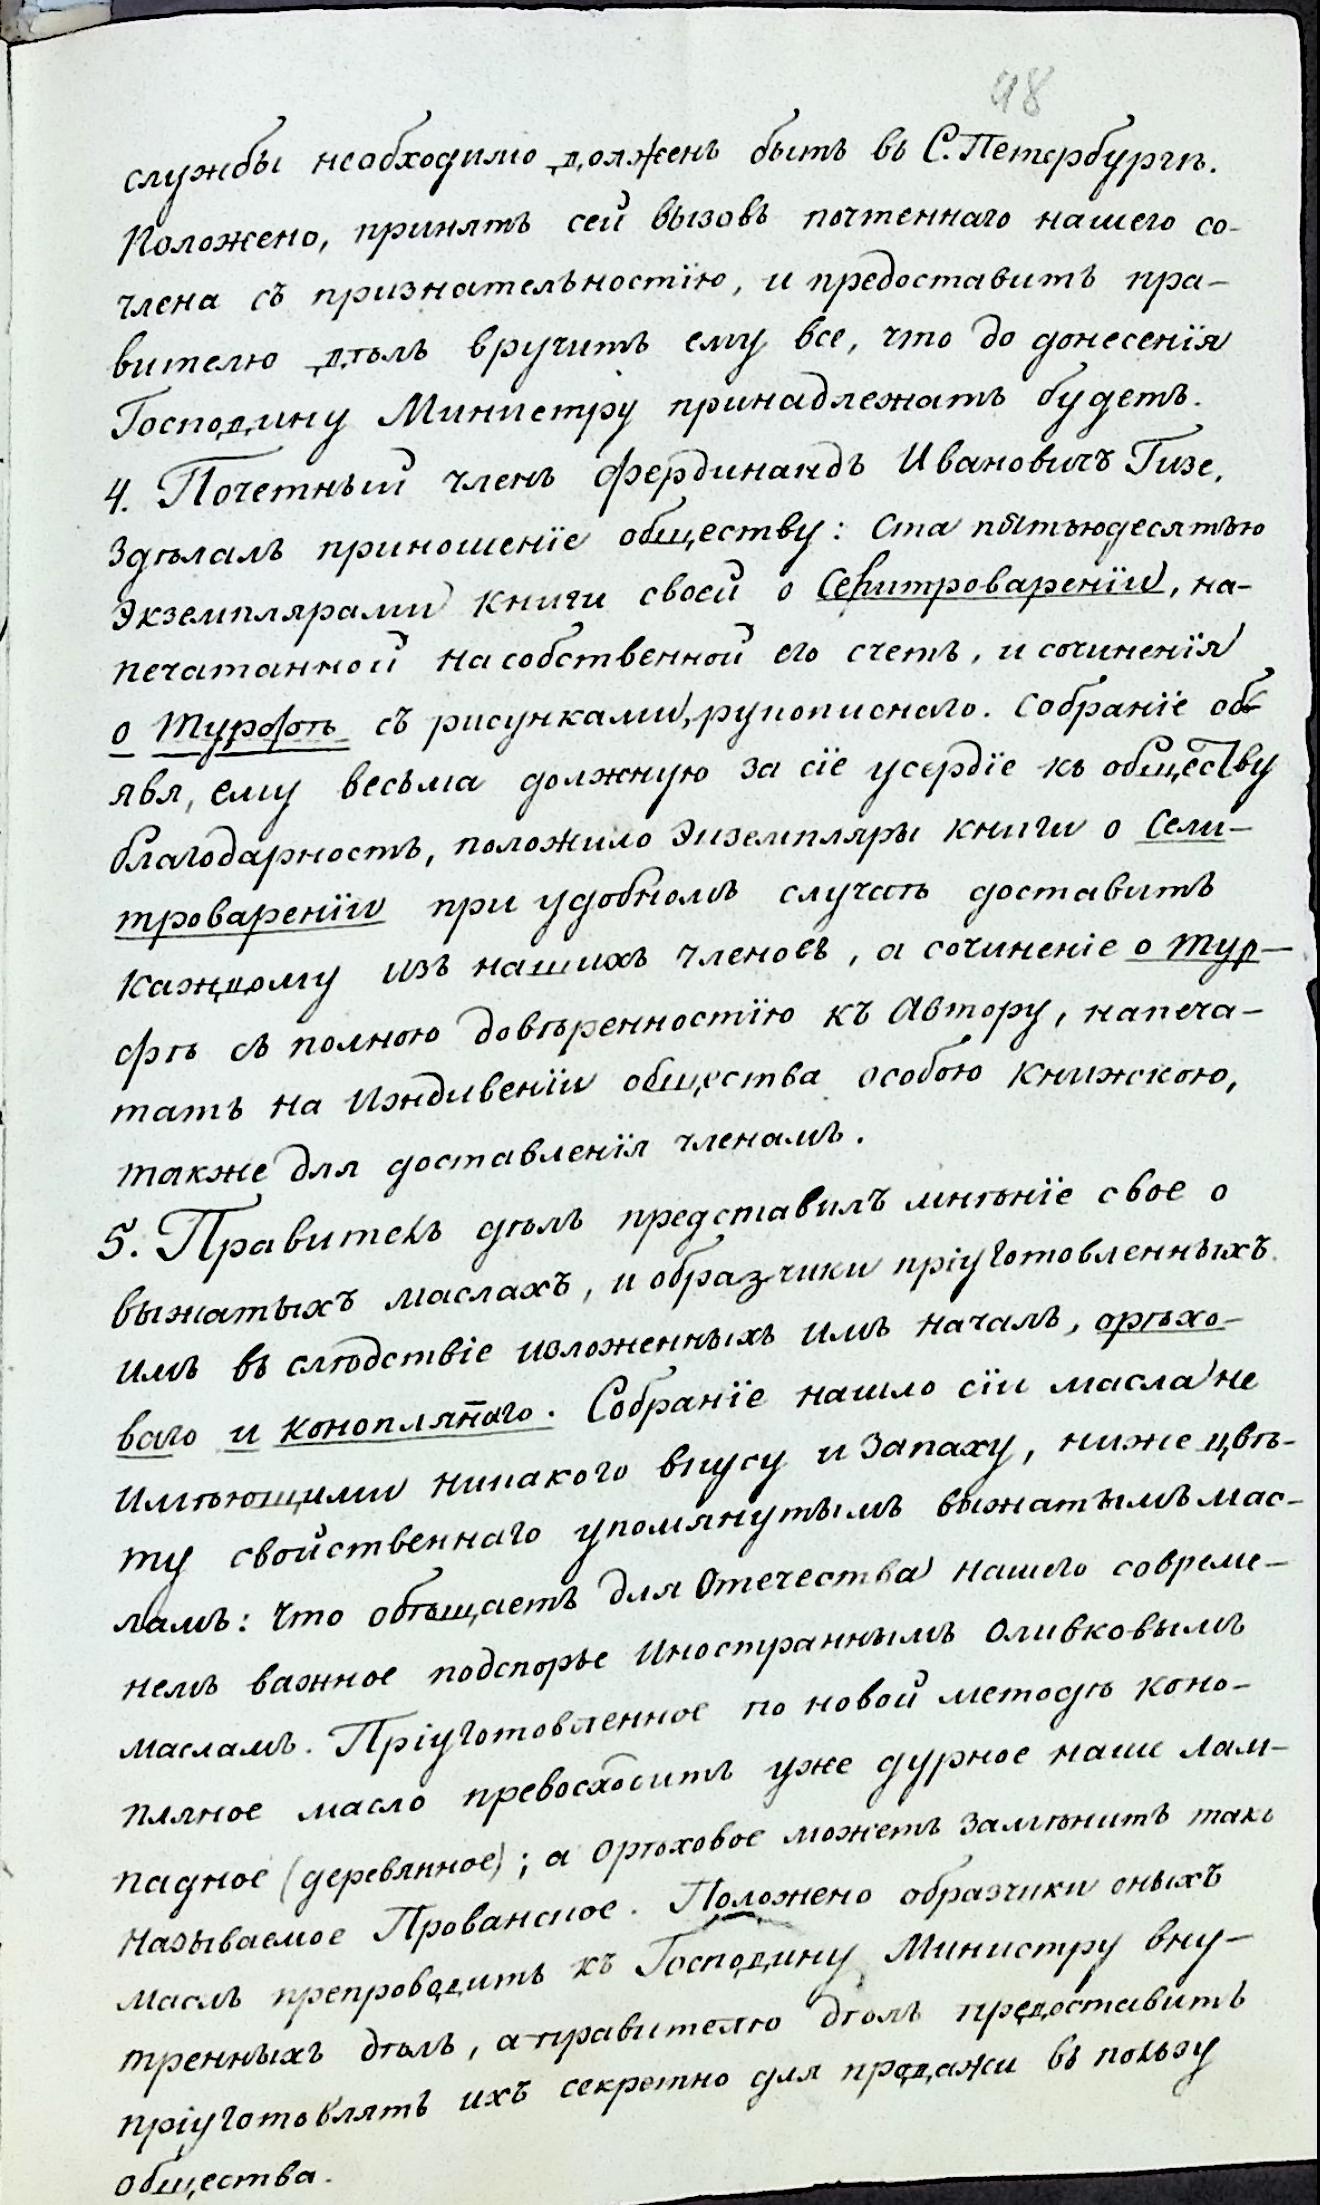 98
службы необходимо долженъ быть въ С. Петербургѣ.
Положено, принять сей вызовъ почтеннаго нашего со-
члена съ признательностїю, и предоставить пра-
вителю дѣлъ вручить ему все, что до донесенїя
Господину Министру принадлежать будетъ.
4. Почетный членъ Фердинандъ Ивановичъ Гизе,
здѣлалъ приношенїе обществу: ста пятьюдесятью
экземплярами книги своей о Селитроваренїи, на-
печатанной на собственной его счетъ, и сочиненїя
о Турфѣ съ рисунками, рукописнаго. Собранїе объ-
явя, ему весьма должную за сїе усердїе къ обществу
благодарность, положило экземпляры книги о Сели-
троваренїи при удобномъ случаѣ доставить
каждому изъ нашихъ членовъ, а сочиненіе о Тур-
фѣ съ полною довѣренностїю къ Автору, напеча-
тать на иждивенїи общества особою книжкою,
также для доставленїя членамъ.
5. Правитель дѣлъ представилъ мнѣнїе свое о
выжатыхъ маслахъ, и образчики прїуготовленныхъ
имъ въ слѣдствіе изложенныхъ имъ началъ, орѣхо-
ваго и коноплянаго. Собранїе нашло сїи масла не
имѣющими никакого вкусу и запаху, ниже цвѣ-
ту свойственнаго упомянутымъ выжатымъ мас-
ламъ: что обѣщаетъ для Отечества нашего совреме-
немъ важное подспорье Иностраннымъ оливковымъ
масламъ. Прїуготовленное по новой методѣ коно-
пляное масло превосходитъ уже дурное наше лам-
падное (деревянное); а орѣховое можетъ замѣнить такъ
называемое Прованское. Положено образчики оныхъ
маслъ препроводить къ Господину Министру вну-
тренныхъ дѣлъ, а правителю дѣлъ предоставить
прїуготовлять ихъ секретно для продажи въ пользу
общества.